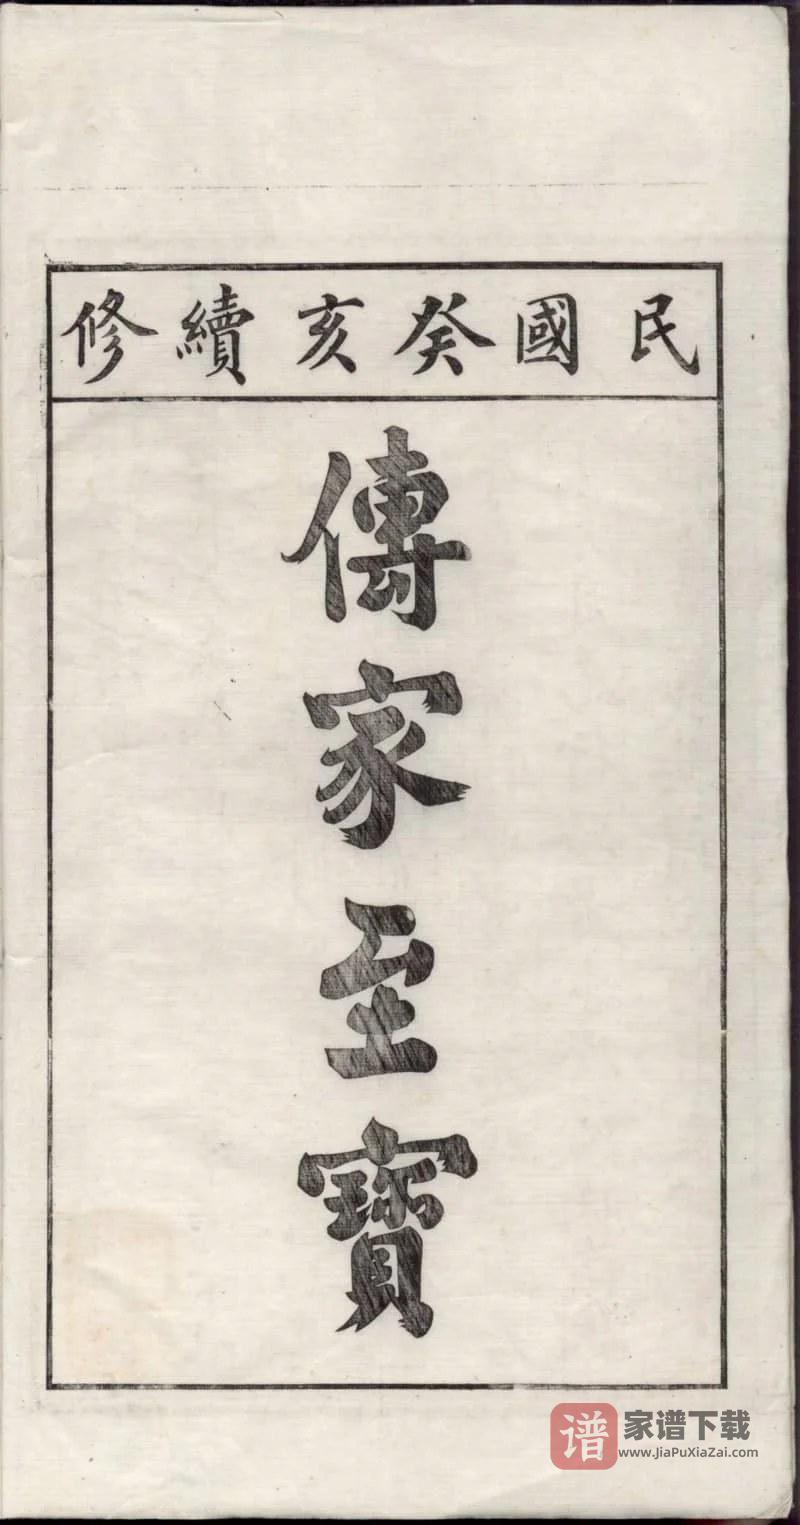 民國癸亥續修
傳家至寶
谱
家谱下载
www.JiaPuXiaZai.com